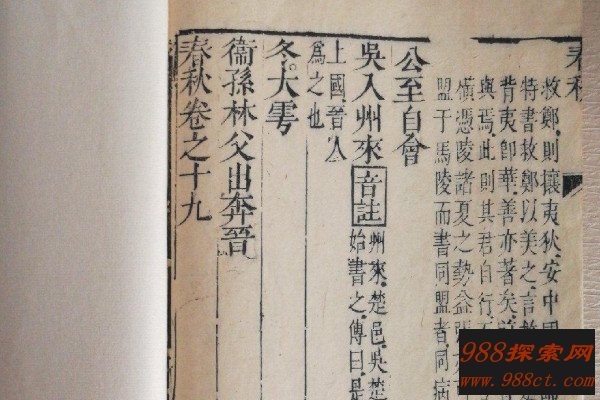 春秋
救鄭則攘夷狄安中國
特書救鄭以美之言救
背夷即華善亦著矣
與焉此則其君自行
嶺憑陵諸夏之勢益
盟于馬陵而書同盟者同病
公至自會
吳入州來 音註 州來楚邑吳楚
始書之傳曰是
上國晉人
為之也
冬大雩
衛孫林父出奔晉
春秋卷之十九
988探索网
www.988ct.com